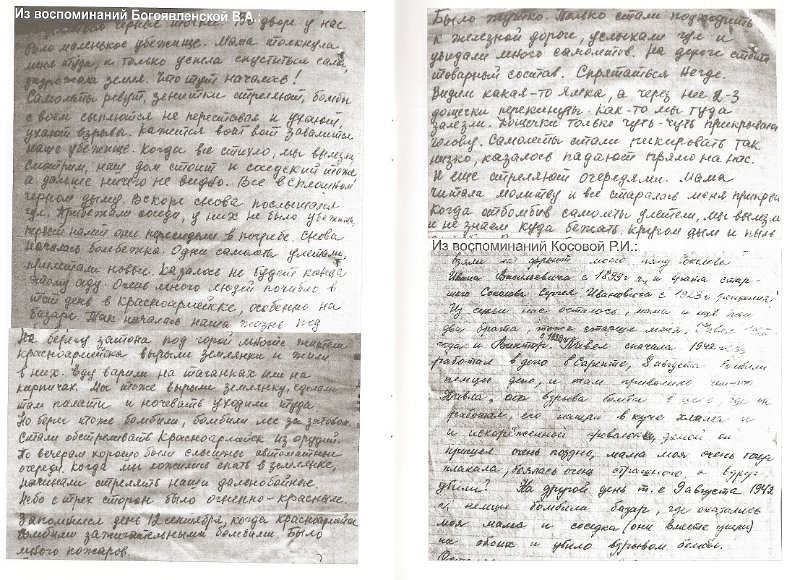 Из воспоминаний Богоявленской В.А.:
дворе у нас
было маленькое убежище. Мама толкнула
меня туда, и только успела спуститься сама,
задрожала земля. Что тут началось!
Самолеты ревут, зенитки стреляют, бомбы
с воем сыплются не переставая и ухают,
ухают взрывы. Кажется вот вот завалится
наше убежище. Когда все стихло, мы вылезли,
смотрим, наш дом стоит и соседский тоже,
а дальше ничего не видно. Все в сплошном
черном дыму. Вскоре снова послышался
гул. Прибежали соседи, у них не было убежища,
они пересидели в погребе. Снова
началась бомбежка. Одни самолеты улетали,
прилетали новые. Казалось не будет конца
этому аду. Очень много людей погибло в
этот день в Красноармейске, особенно на
базаре. Так началась наша жизнь под
На берегу затона под горой многие жители
красноармейска вырыли землянки и жили
в них. Еду варили на таганках или на
кирпичах. Мы тоже вырыли землянку, сделали
там палати и ночевать уходили туда.
Но берег тоже бомбили, бомбили лес за затоном.
Стали обстреливать Красноармейск из орудий.
По вечерам хорошо были слышны автоматные
очереди. Когда мы ложились спать в землянке,
начинали стрелять наши дальнобойные.
Небо с трех сторон было огненно-красным.
Запомнился день 12 сентября, когда красноармейск
бомбили зажигательными бомбами. Было
много пожаров.
Было жутко. Только стали подходить
к железной дороге, услыхали гул и
увидали много самолётов. На дороге стоит
товарный состав. Спрятаться негде.
Видим какая-то ямка, а через нее 2-3
дощечки перекинуты. Как-то мы туда
залезли. Дощечки только чуть-чуть прикрывали
голову. Самолеты стали пикировать так
низко, казалось падают прямо на нас.
И еще стреляют очередями. Мама
читала молитву и все старалась меня прикрыть
Когда отбомбив самолеты улетели, мы вылезли
и не знаем куда бежать кругом дым и пыль
Из воспоминаний Косовой Р.И.:
взяли на фронт моего папу Соколова
Ивана Васильевича с 1899 г. и брата стар-
шего Соколова Сергея Ивановича с 1923 г рождения.
Из семьи нас осталось, мама и ещё
два брата, тоже старше меня,
года и Виктор. Павел сначала 1942
работал в депо в Сарепте, 8 августа бомбили
немцы депо, и там привалило
Павла, от взрыва бомбы в цехе, где он
работал, его нашли в куче хлама и
и искорёженной проволоки, домой он
пришёл очень поздно, мама моя очень тогда
плакала, боялась очень страшного, а вдруг
убили? На другой день т.е. 9 августа 1942
г. немцы бомбили базар, где оказались
моя мама и соседка (они вместе ушли)
убило взрывом бомбы.